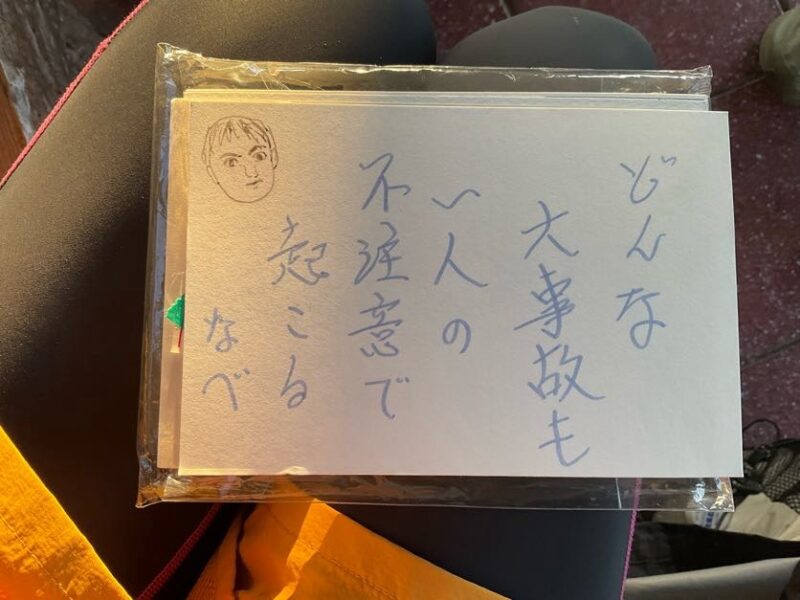 どんな
大事故も
い人の
不注意で
起こる
なべ